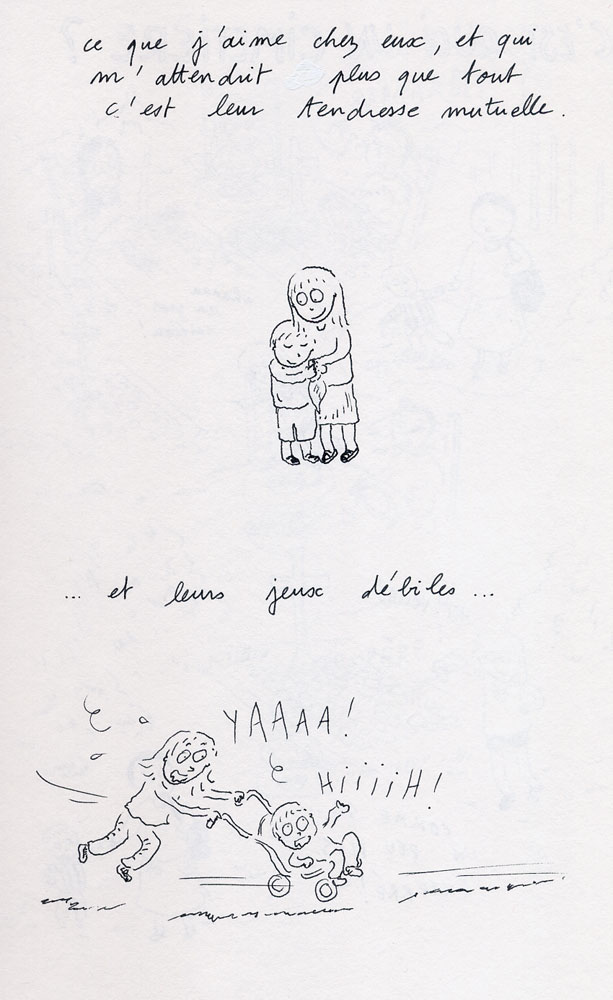 ce que j'aime chez eux, et qui
m'attendrit plus que tout
c'est leur tendresse mutuelle.
... et leurs jeux débiles...
YAAAA!
HiiiiH!